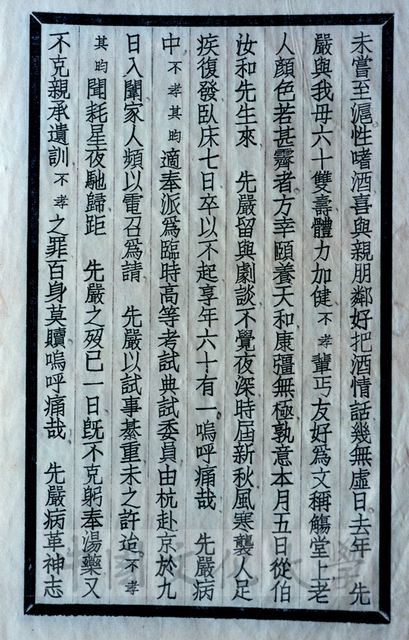 未嘗至滬性嗜酒喜與親朋鄰好把酒情話幾無虛日去年　先
嚴與我母六十雙壽體力加健不孝輩丐友好為文稱觴堂上老
人顏色若甚霽者方幸頤養天和康彊無極孰意本月五日從伯
汝和先生來　先嚴留與劇談不覺夜深時屆新秋風寒襲人足
疾復發臥床七日卒以不起享年六十有一嗚呼痛哉　先嚴病
中不孝其昀適奉派為臨時高等考試典試委員由杭赴京於九
日入闈家人頻以電召為請　先嚴以試事綦重未之許迨不孝
其昀聞耗星夜馳歸距　先嚴之歿已一日既不克躬奉湯藥又
不克親承遺訓不孝之罪百身莫贖嗚呼痛哉　先嚴病革神志